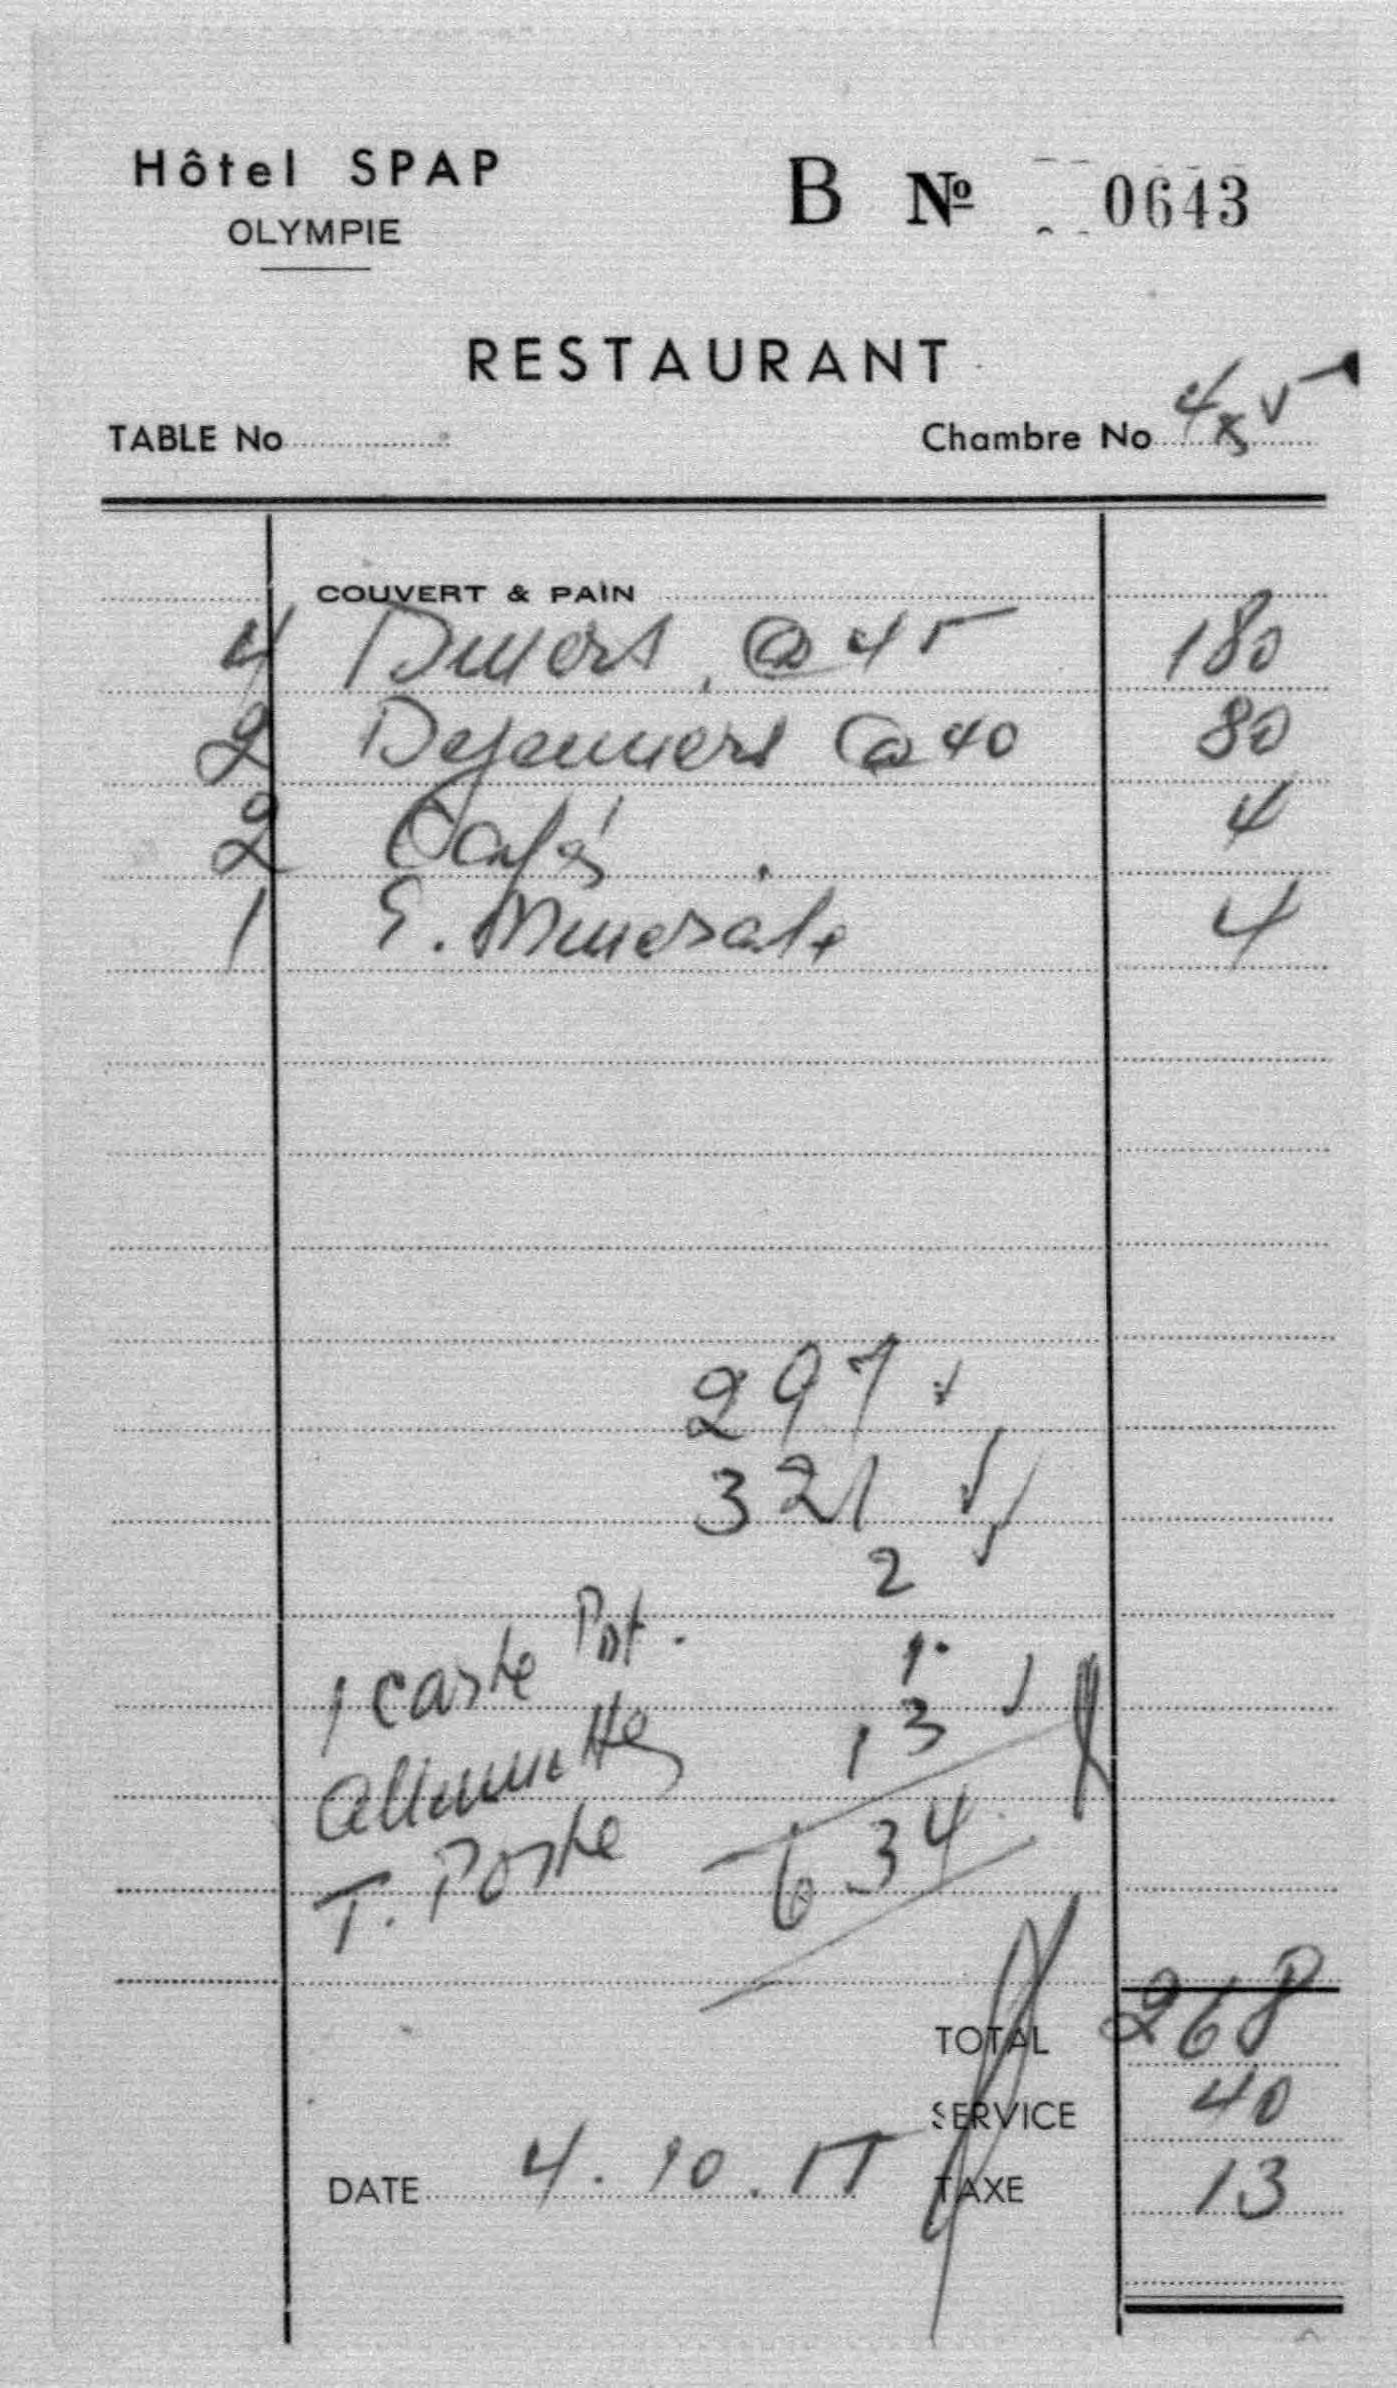 Hôtel SPAP
OLYMPIE
B № 0643
RESTAURANT
TABLE No
Chambre No 4 x 5
COUVERT & PAIN
4 Diners @ 45 180
2 Dejeuners @ 40 80
2 Cafés 4
1 E. Minerale 4
297
321
2
1 carte Post. 1.
allumettes 13
T. Poste 634
TOTAL 268
SERVICE 40
DATE 4.10.55 TAXE 13